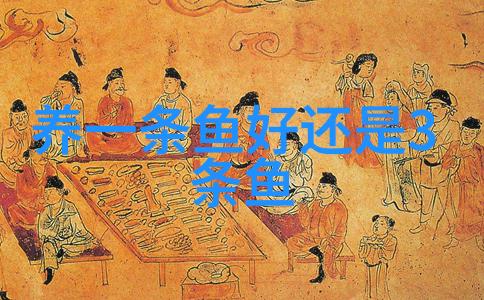 养一条鱼好还是3
条鱼